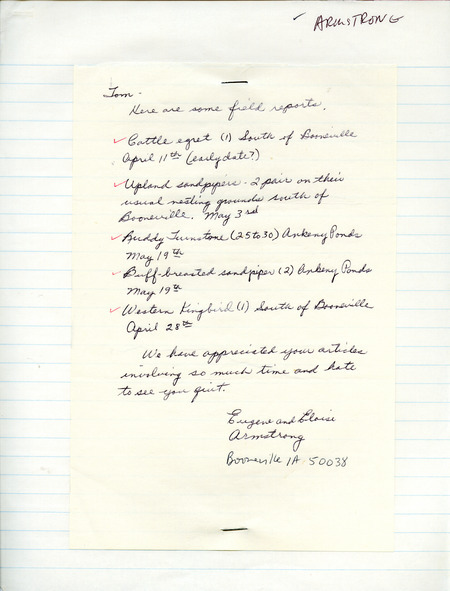 ✓ ARMSTRONG
Tom -
Here are some field reports.
✓Cattle egret (1) South of Booneville
April 11th (early date?)
✓Upland sandpipers - 2 pair on their
usual nesting grounds south of
Booneville. May 3rd
✓Ruddy Turnstone (25 to 30) Ankeny Ponds
May 19th
✓Buff-breasted sandpiper (2) Ankeny Ponds
May 19th
✓Western Kingbird (1) South of Booneville
April 28th
We have appreciated your articles
involving so much time and hate
to see you quit.
Eugene and Eloise
Armstrong
Booneville IA 50038